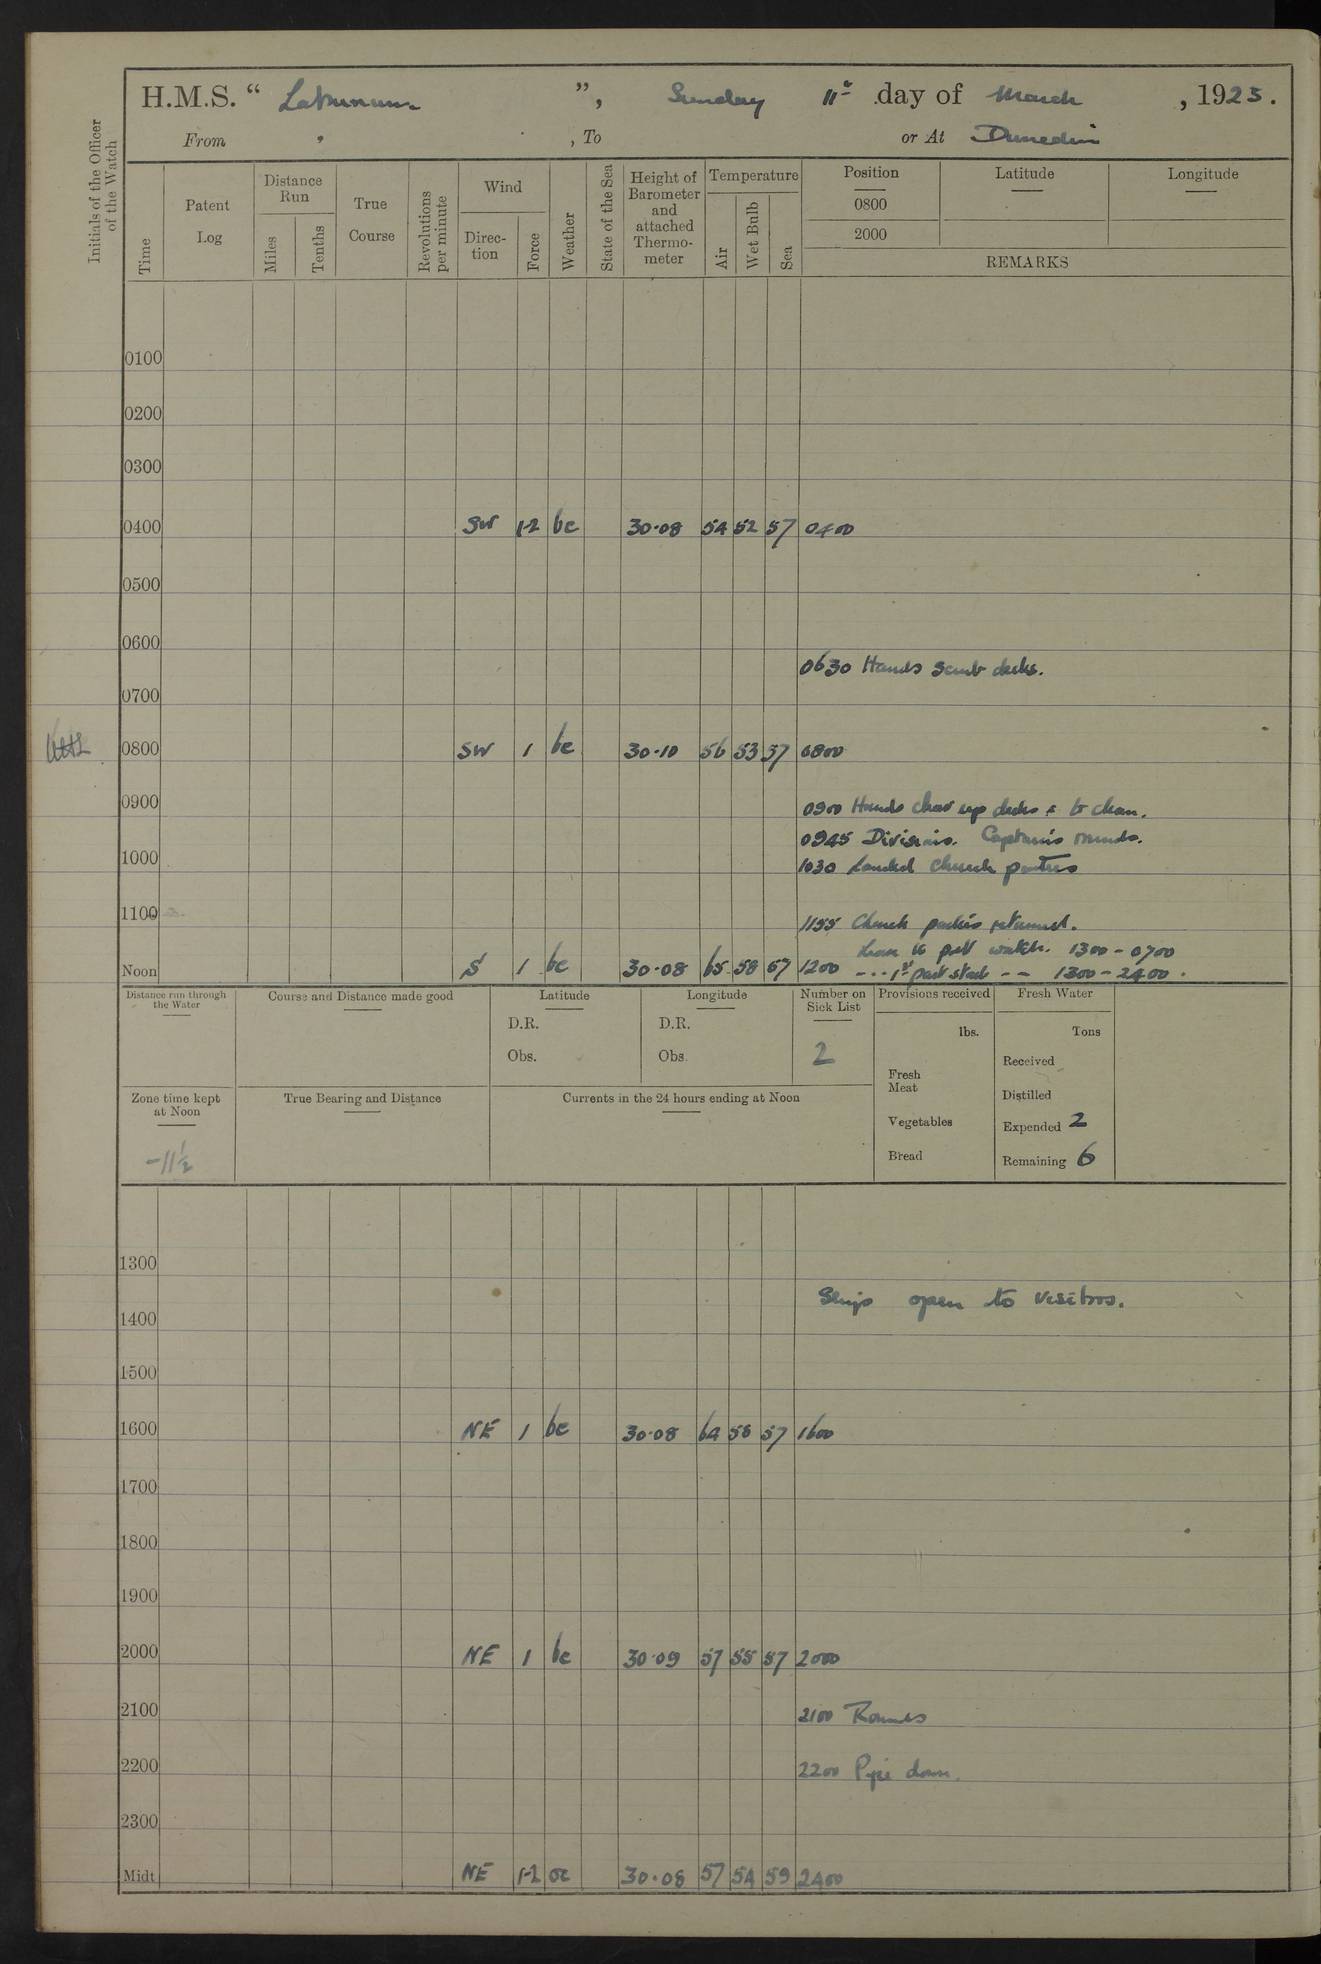 H.M.S. “ Laburnum ”, Sunday 11th day of March , 1923.
From , To or At Dunedin
Initials of the Officer of the Watch
Time
Patent Log
Distance Run
Miles
Tenths
True Course
Revolutions per minute
Wind
Direc-tion
Force
Weather
State of the Sea
Height of Barometer and attached Thermo-meter
Temperature
Air
Wet Bulb
Sea
Position
0800
2000
Latitude
Longitude
REMARKS
0100
0200
0300
0400 SW 1-2 bc 30.08 54 52 57 0400
0500
0600
0630 Hands scrub decks.
0700
0800 SW 1 bc 30.10 56 53 57 0800
0900
0900 Hands clear up decks & to clean.
0945 Divisions. Captain's rounds.
1000
1030 Landed church parties
1100
1155 Church parties returned.
Leave to part watch. 1300 - 0700
Noon S 1 bc 30.08 65 58 57 1200 - - - 1st part stock - - 1300 - 2400.
Distance run through the Water
Course and Distance made good
Latitude
D.R.
Obs.
Longitude
D.R.
Obs.
Number on Sick List
2
Provisions received
lbs.
Fresh Meat
Vegetables
Bread
Fresh Water
Tons
Received
Distilled
Expended 2
Remaining 6
Zone time kept at Noon
-11½
True Bearing and Distance
Currents in the 24 hours ending at Noon
1300
Ships open to visitors.
1400
1500
1600 NE 1 bc 30.08 64 58 57 1600
1700
1800
1900
2000 NE 1 bc 30.09 57 55 57 2000
2100
2100 Rounds
2200
2200 Pipe down.
2300
Midt NE 1-2 oc 30.08 57 54 59 2400